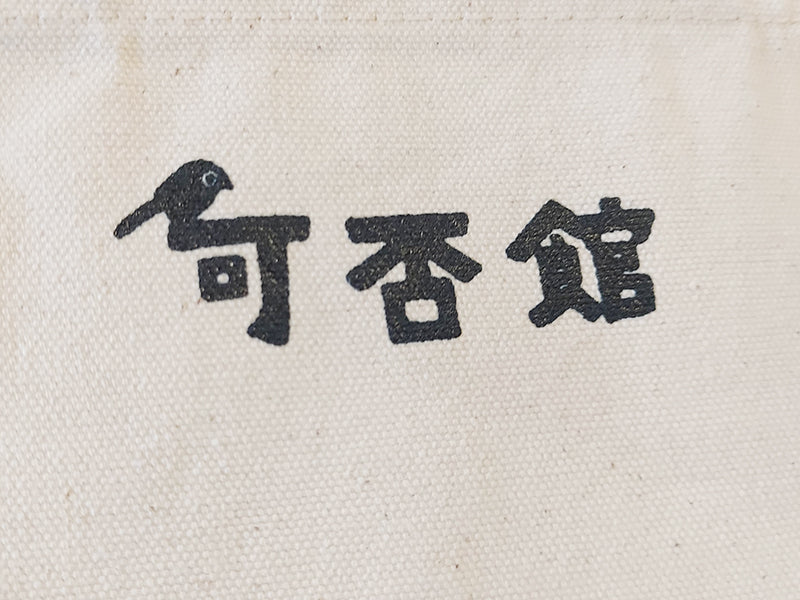 可否館